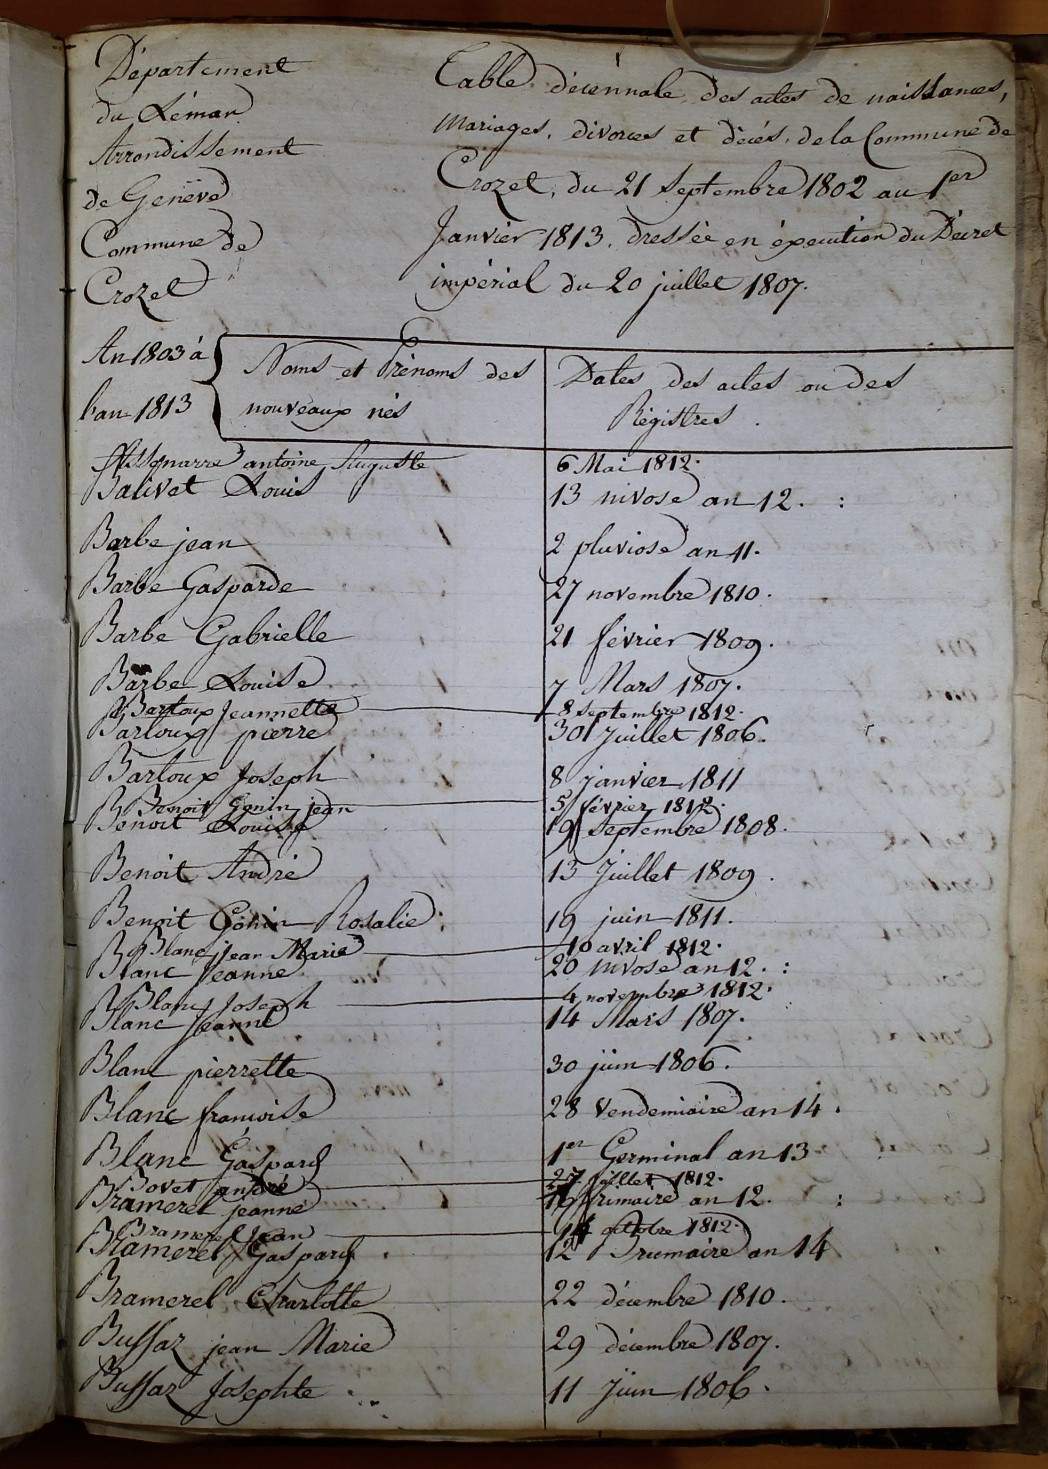 Département
du Léman
Arrondissement
de Genève
Commune de
Crozet
Table décennale des actes de naissances,
Mariages, divorces et décès, de la Commune de
Crozet, du 21 septembre 1802 au 1er
Janvier 1813, dressée en éxecution du Décret
impérial du 20 juillet 1807.
An 1803 à
l'an 1813
Noms et Prénoms des
nouveaux nés
Dates des actes ou des
Régistres.
antoine Auguste 6 Mai 1812.
Balivet Louis 13 nivose an 12. :
Barbe jean 2 pluviose an 11.
Barbe Gasparde 27 novembre 1810.
Barbe Gabrielle 21 février 1809.
Barbe Louise 7 Mars 1807.
Bartoux Jeannette 8 septembre 1812.
Bartoux pierre 30 Juillet 1806.
Bartoux Joseph 8 janvier 1811
Benoit Gonin jean 5 février 1812.
Benoit Louise 19 septembre 1808.
Benoit André 13 Juillet 1809.
Benoit Gonin Rosalie 19 juin 1811.
Blanc Jean Marie 10 avril 1812.
Blanc Jeanne 20 nivose an 12. :
Blanc Joseph 4 novembre 1812.
Blanc Jeanne 14 Mars 1807.
Blanc pierrette 30 juin 1806.
Blanc francoise 28 Vendemiaire an 14.
Blanc Gaspard 1er Germinal an 13
Bovet andré 27 juillet 1812.
Bramerel jeanne frimaire an 12. :
Bramerel Jean octobre 1812.
Bramerel Gaspard 12 Brumaire an 14
Bramerel Charlotte 22 décembre 1810.
Bussaz jean Marie 29 décembre 1807.
Bussaz Josephte 11 Juin 1806.